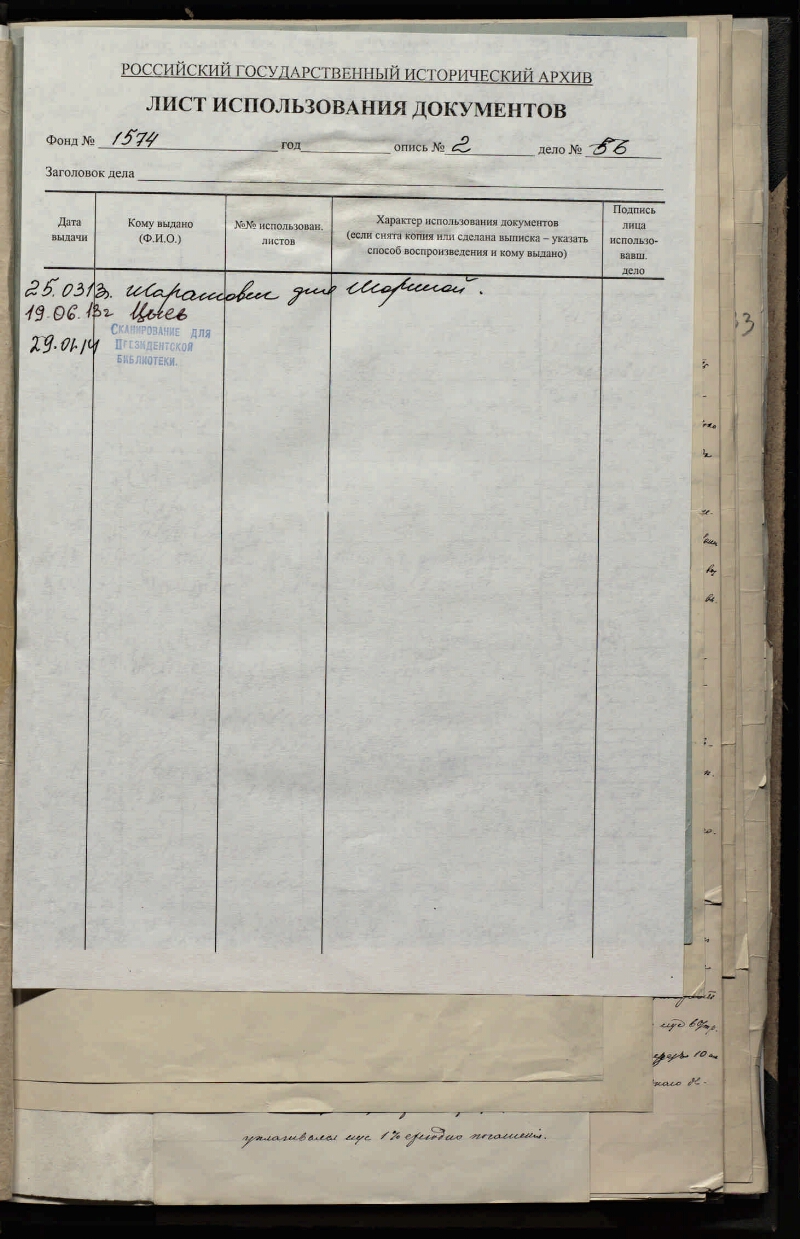 РОССИЙСКИЙ ГОСУДАРСТВЕННЫЙ ИСТОРИЧЕСКИЙ АРХИВ
ЛИСТ ИСПОЛЬЗОВАНИЯ ДОКУМЕНТОВ
Фонд № 1574 год опись № 2 дело № 56
Заголовок дела
Дата выдачи
Кому выдано (Ф.И.О.)
№№ использован. листов
Характер использования документов
(если снята копия или сделана выписка – указать
способ воспроизведения и кому выдано)
Подпись
лица
использо-
вавш.
дело
25.03.13г. для
19.06.13г
29.01.14
СКАНИРОВАНИЕ ДЛЯ
ПРЕЗИДЕНТСКОЙ
БИБЛИОТЕКИ.
1% погашенія.